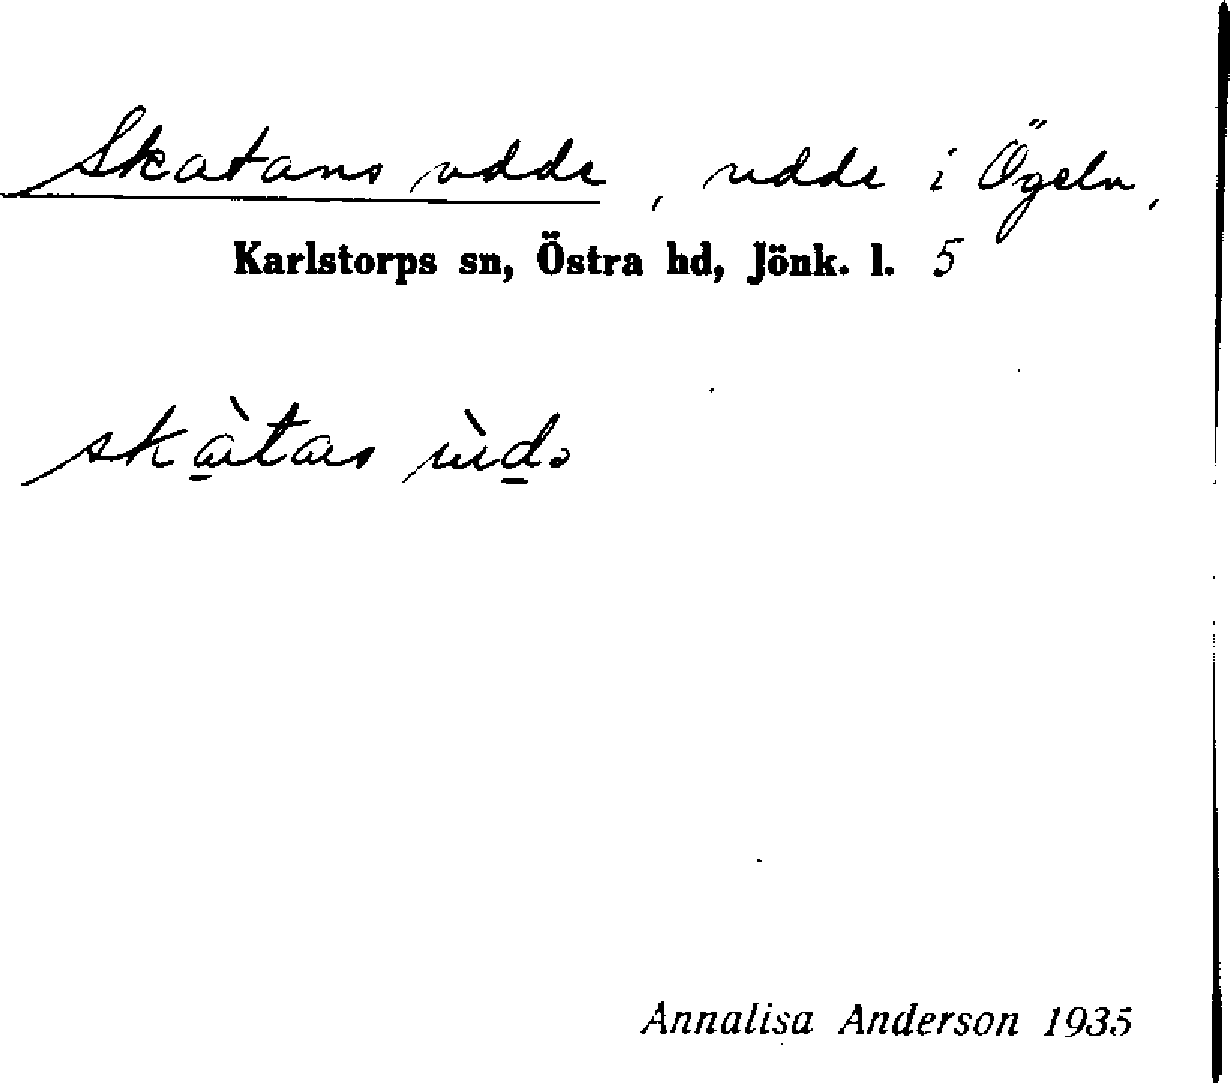 Skatans udde, udde i Ögeln,
Karlstorps sn, Östra hd, Jönk. l. 5
skàtas ùdə
Annalisa Anderson 1935